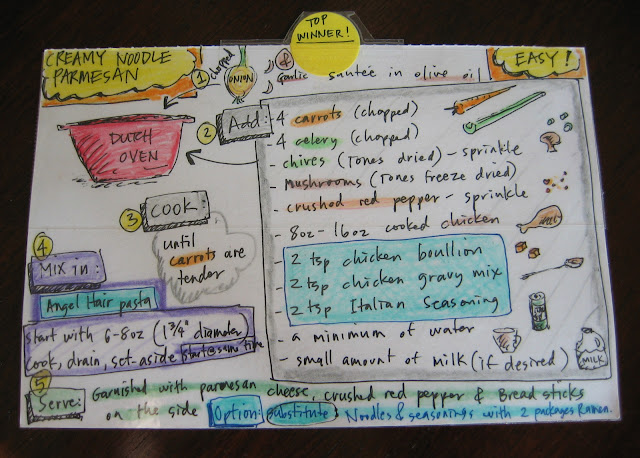 TOP
WINNER!
CREAMY NOODLE
PARMESAN
EASY!
1 chopped
ONION
& garlic sautée in olive oil
DUTCH
OVEN
2 Add:
- 4 carrots (chopped)
- 4 celery (chopped)
- chives (Tones dried) - sprinkle
- Mushrooms (Tones freeze dried)
- crushed red pepper - sprinkle
- 8oz - 16oz cooked chicken
- 2 tsp chicken boullion
- 2 tsp chicken gravy mix
- 2 tsp Italian Seasoning
- a minimum of water
- small amount of milk (if desired)
MILK
3
COOK
until
carrots are
tender
4
MIX in:
Angel Hair pasta
start with 6-8oz (1 3/4" diameter)
cook, drain, set-aside start@same time
5
Serve: Garnished with parmesan cheese, crushed red pepper & Bread sticks
on the side Option: substitute: Noodles & seasonings with 2 packages Ramen.